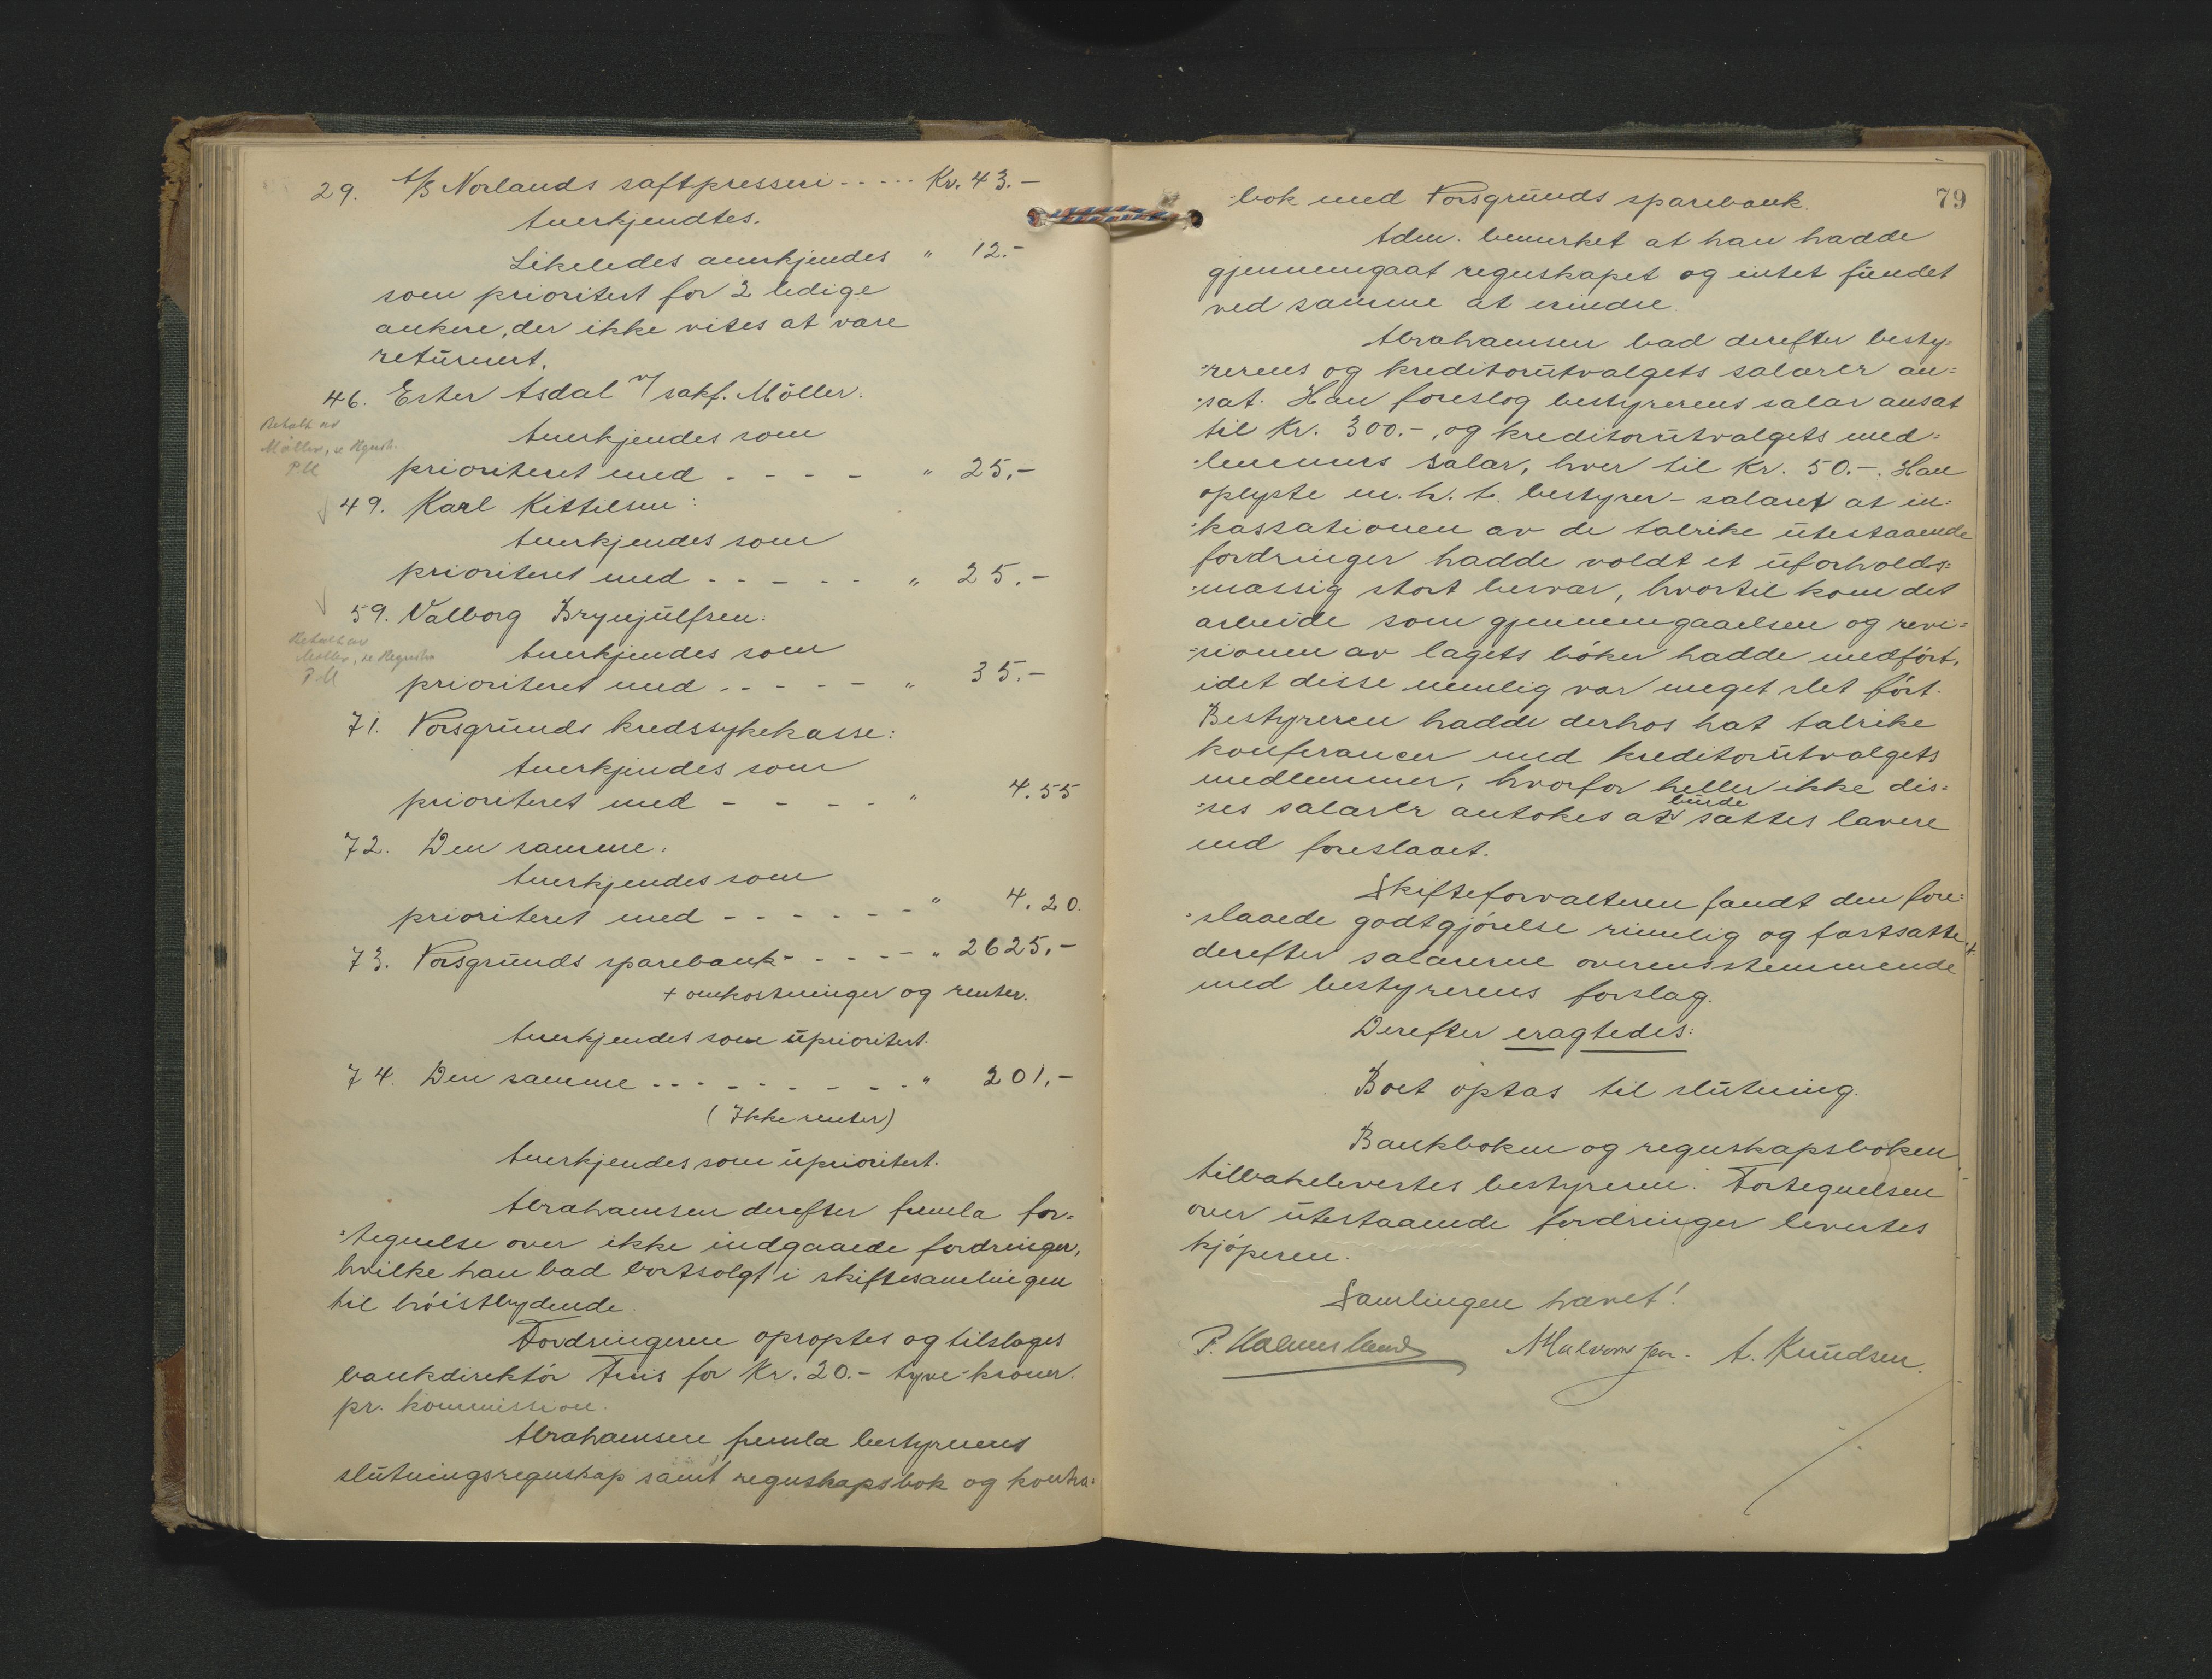 29. A/S Norlands saftpresseri ..... Kr. 43.-
Anerkjendtes.
Likeledes anerkjendes " 12.-
som prioritert for 2 ledige
ankere, der ikke vites at være
returnert.
46. Ester Asdal v/ sakf. Möller:
Betalt av
Möller, se Regnsk.
PM
Anerkjendes som
prioriteret med - - - - " 25.-
49. Karl Kittilsen:
Anerkjendes som
prioriteret med - - - - - " 25.-
59. Valborg Brynjulfsen:
Betalt av
Möller, se Regnsk
PM
Anerkjendes som
prioriteret med - - - - - " 35.-
71. Porsgrunds kredssykekasse:
Anerkjendes som
prioriteret med - - - - " 4.55
72. Den samme:
Anerkjendes som
prioriteret med - - - - - - " 4.20.
73. Porsgrunds sparebank - - - - - " 2625.-
+ omkostninger og renter.
Anerkjendes som uprioritert.
74. Den samme - - - - - - - - - " 201.-
(Ikke renter)
Anerkjendes som uprioritert.
Abrahamsen derefter fremla for=
=tegnelse over ikke indgaaede fordringer,
hvilke han bad bortsolgt i skiftesamlingen
til höistbydende.
Fordringerne oproptes og tilsloges
bankdirektör Friis for Kr. 20.- tyve-kroner.
pr. kommission.
Abrahamsen fremla bestyrerens
slutningsregnskap samt regnskapsbok og kontra=
79
bok med Porsgrunds sparebank.
Adm. bemerket at han hadde
gjennemgaat regnskapet og intet fundet
ved samme at erindre.
Abrahamsen bad derefter besty=
=rerens og kreditorutvalgets salærer an=
=sat. Han foreslog bestyrerens salær ansat
til Kr. 300.-, og kreditorutvalgets med=
=lemmers salær, hver til Kr. 50.-. Han
oplyste m. h. t. bestyrer-salæret at in=
=kassationen av de talrike utestaaende
fordringer hadde voldt et uforholds=
=mæssig stort besvær, hvortil kom det
arbeide som gjennemgaaelsen og revi=
=sionen av lagets böker hadde medfört,
idet disse nemlig var meget slet fört.
Bestyreren hadde derhos hat talrike
konferancer med kreditorutvalgets
medlemmer, hvorfor heller ikke dis=
=ses salærer antokes at burde sættes lavere
end foreslaaet.
Skifteforvalteren fandt den fore=
=slaaede godtgjörelse rimelig og fastsatte
derefter salærerne overensstemmende
med bestyrerens forslag.
Derefter eragtedes:
Boet optas til slutning.
Bankboken og regnskapsboken
tilbakelevertes bestyreren. Fortegnelsen
over utestaaende fordringer levertes
kjöperen.
Samlingen hævet!
P. Halmesland A. Knudsen.